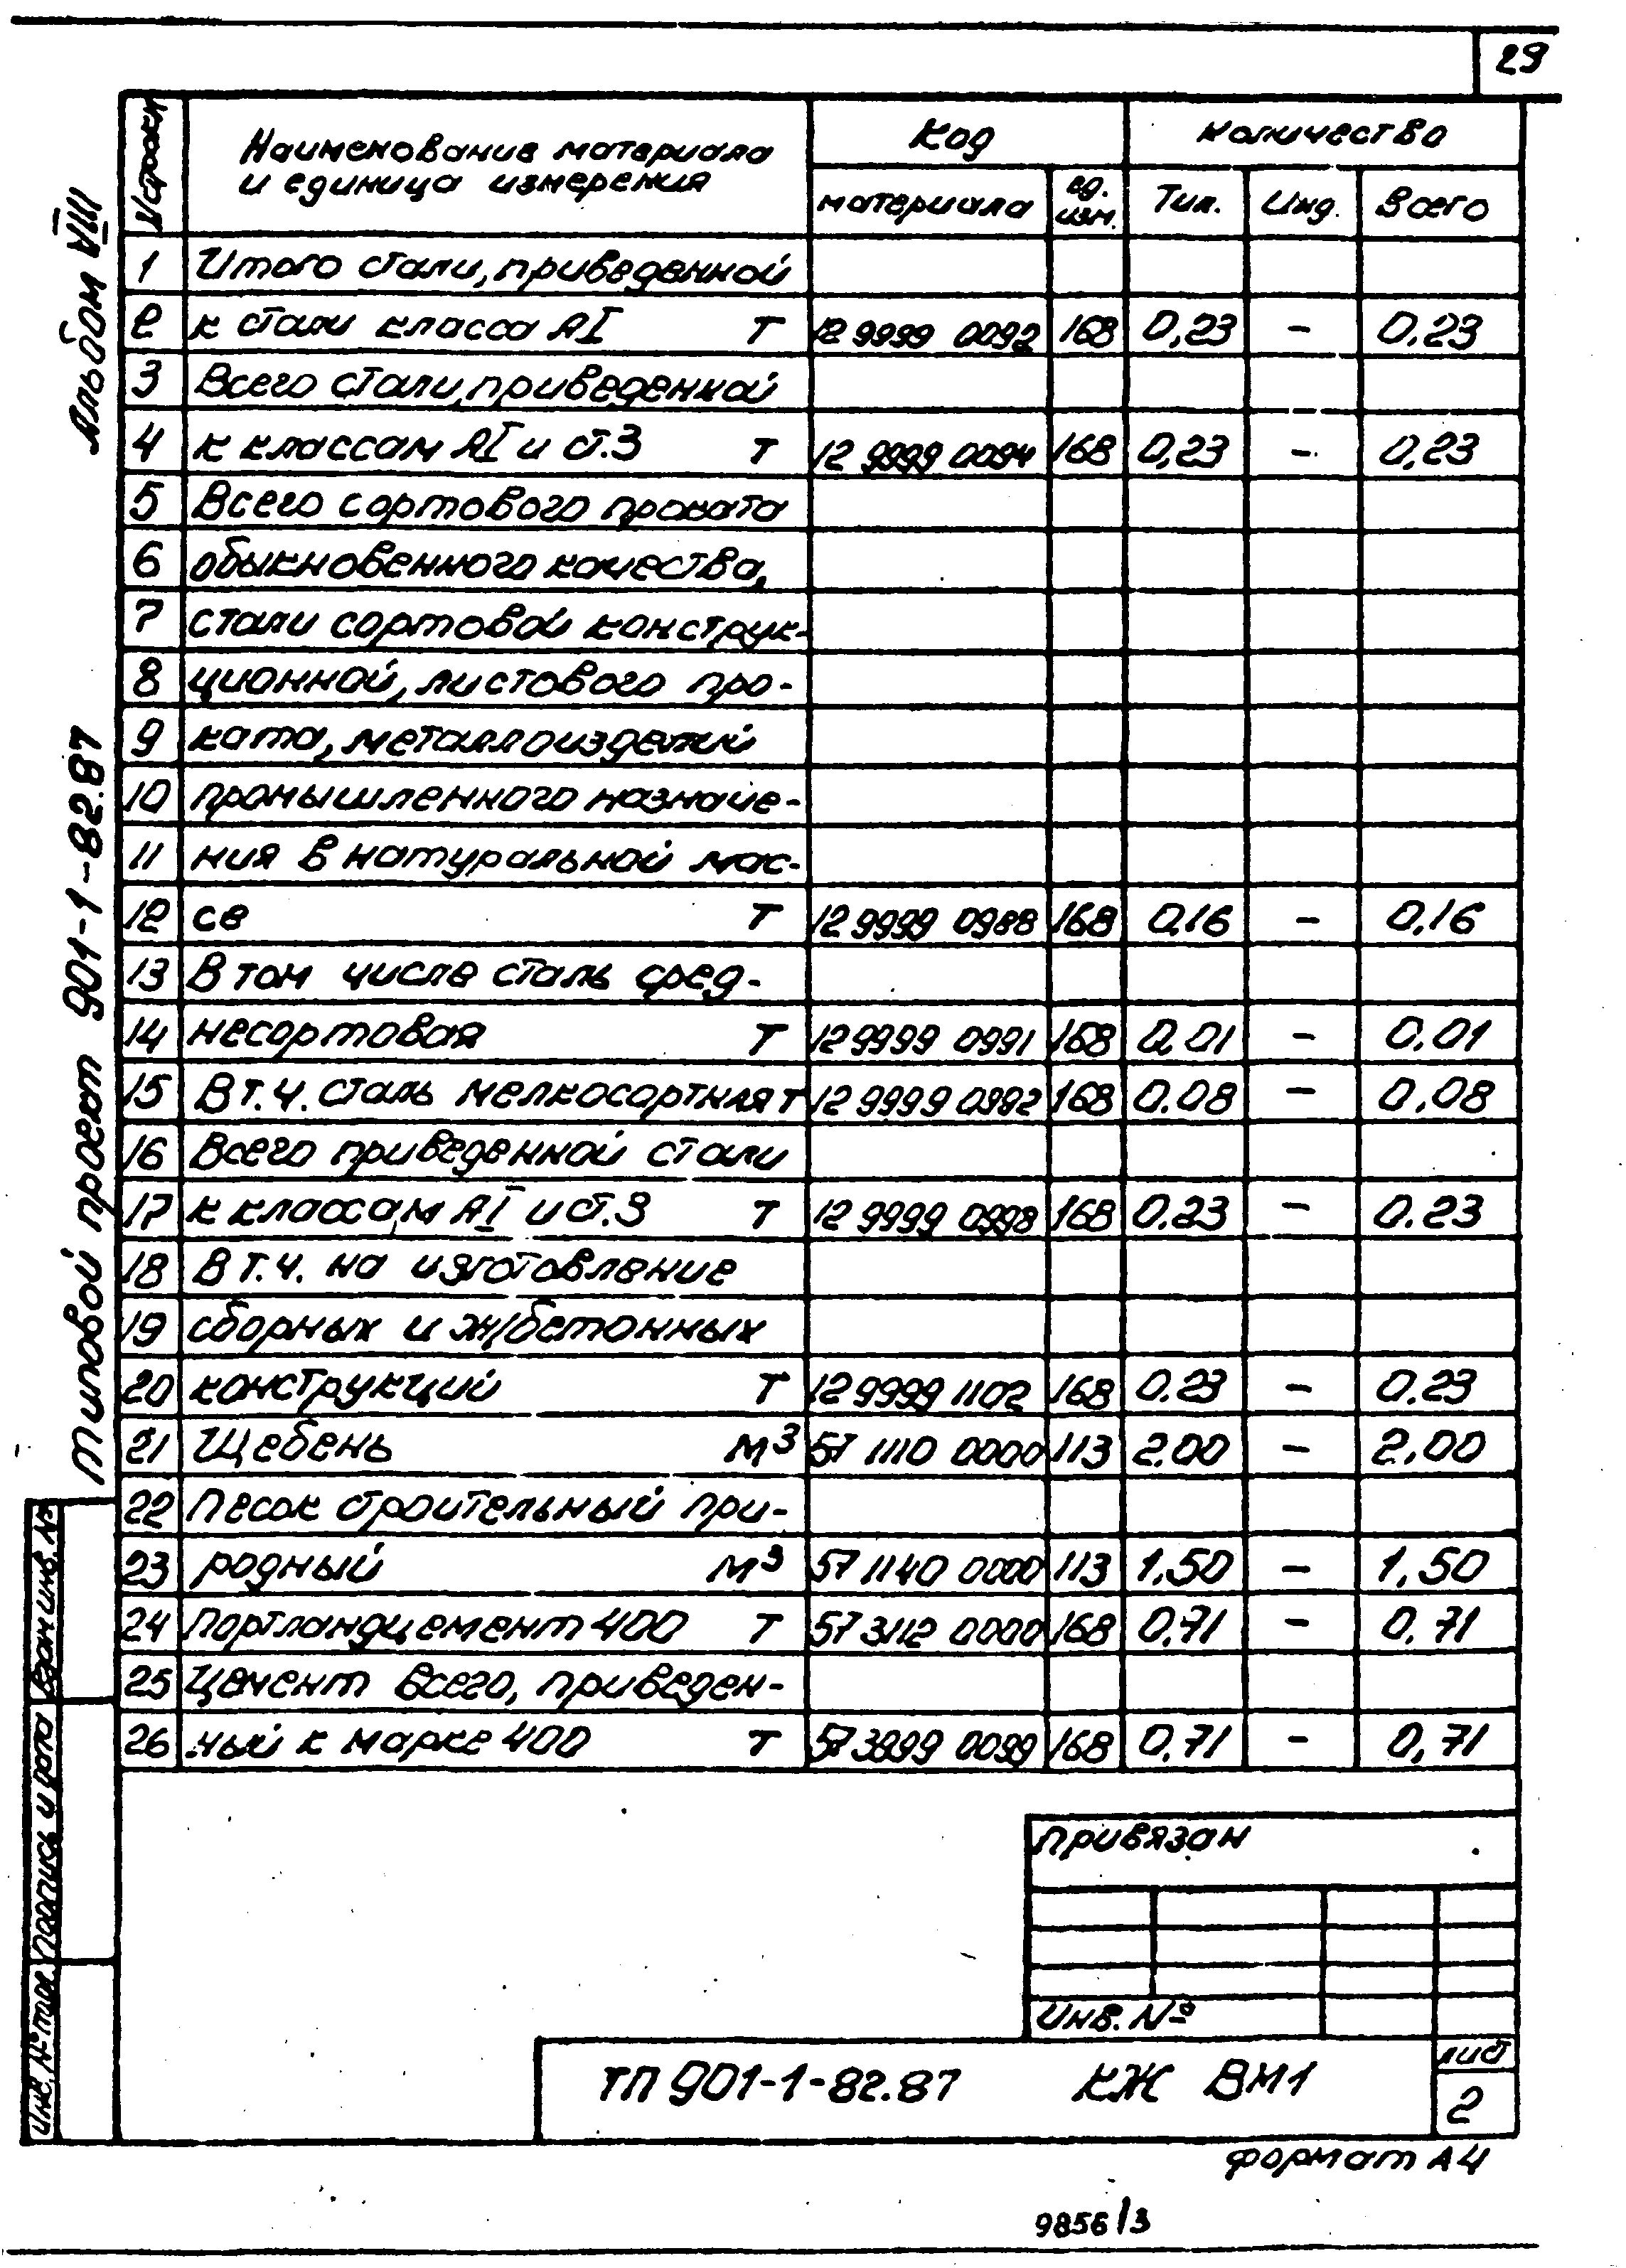 29
Альбом VIII
Типовой проект 901-1-82.87
№ строки
Наименование материала
и единица измерения
Код
Количество
материала
ед.
изм.
Тип.
Инд.
Всего
1 Итого стали, приведенной
2 к стали класса АI т 12 9999 0092 168 0,23 - 0.23
3 Всего стали, приведенной
4 к классам АI и ст.3 т 12 9999 0094 168 0,23 - 0,23
5 Всего сортового проката
6 обыкновенного качества,
7 стали сортовой конструк-
8 ционной, листового про-
9 ката, металлоизделий
10 промышленного назначе-
11 ния в натуральной мас-
12 се т 12 9999 0988 168 0,16 - 0,16
13 В том числе сталь сред-
14 несортовая т 12 9999 0991 168 0,01 - 0.01
15 В т.ч. сталь мелкосортная т 12 9999 0992 168 0.08 - 0,08
16 Всего приведенной стали
17 к классам АI и ст.3 т 12 9999 0998 168 0.23 - 0.23
18 В т.ч. на изготовление
19 сборных и ж/бетонных
20 конструкций т 12 9999 1102 168 0.23 - 0.23
21 Щебень м³ 57 1110 0000 113 2.00 - 2,00
22 Песок строительный при-
23 родный м³ 57 1140 0000 113 1,50 - 1,50
24 Портландцемент 400 т 57 3112 0000 168 0,71 - 0,71
25 Цемент всего, приведен-
26 ный к марке 400 т 57 3999 0099 168 0,71 - 0,71
Взам инв. №
Подпись и дата
Инв. № подл.
Привязан
Инв. №
ТП 901-1-82.87 КЖ ВМ1
лист
2
формат А4
9856/3